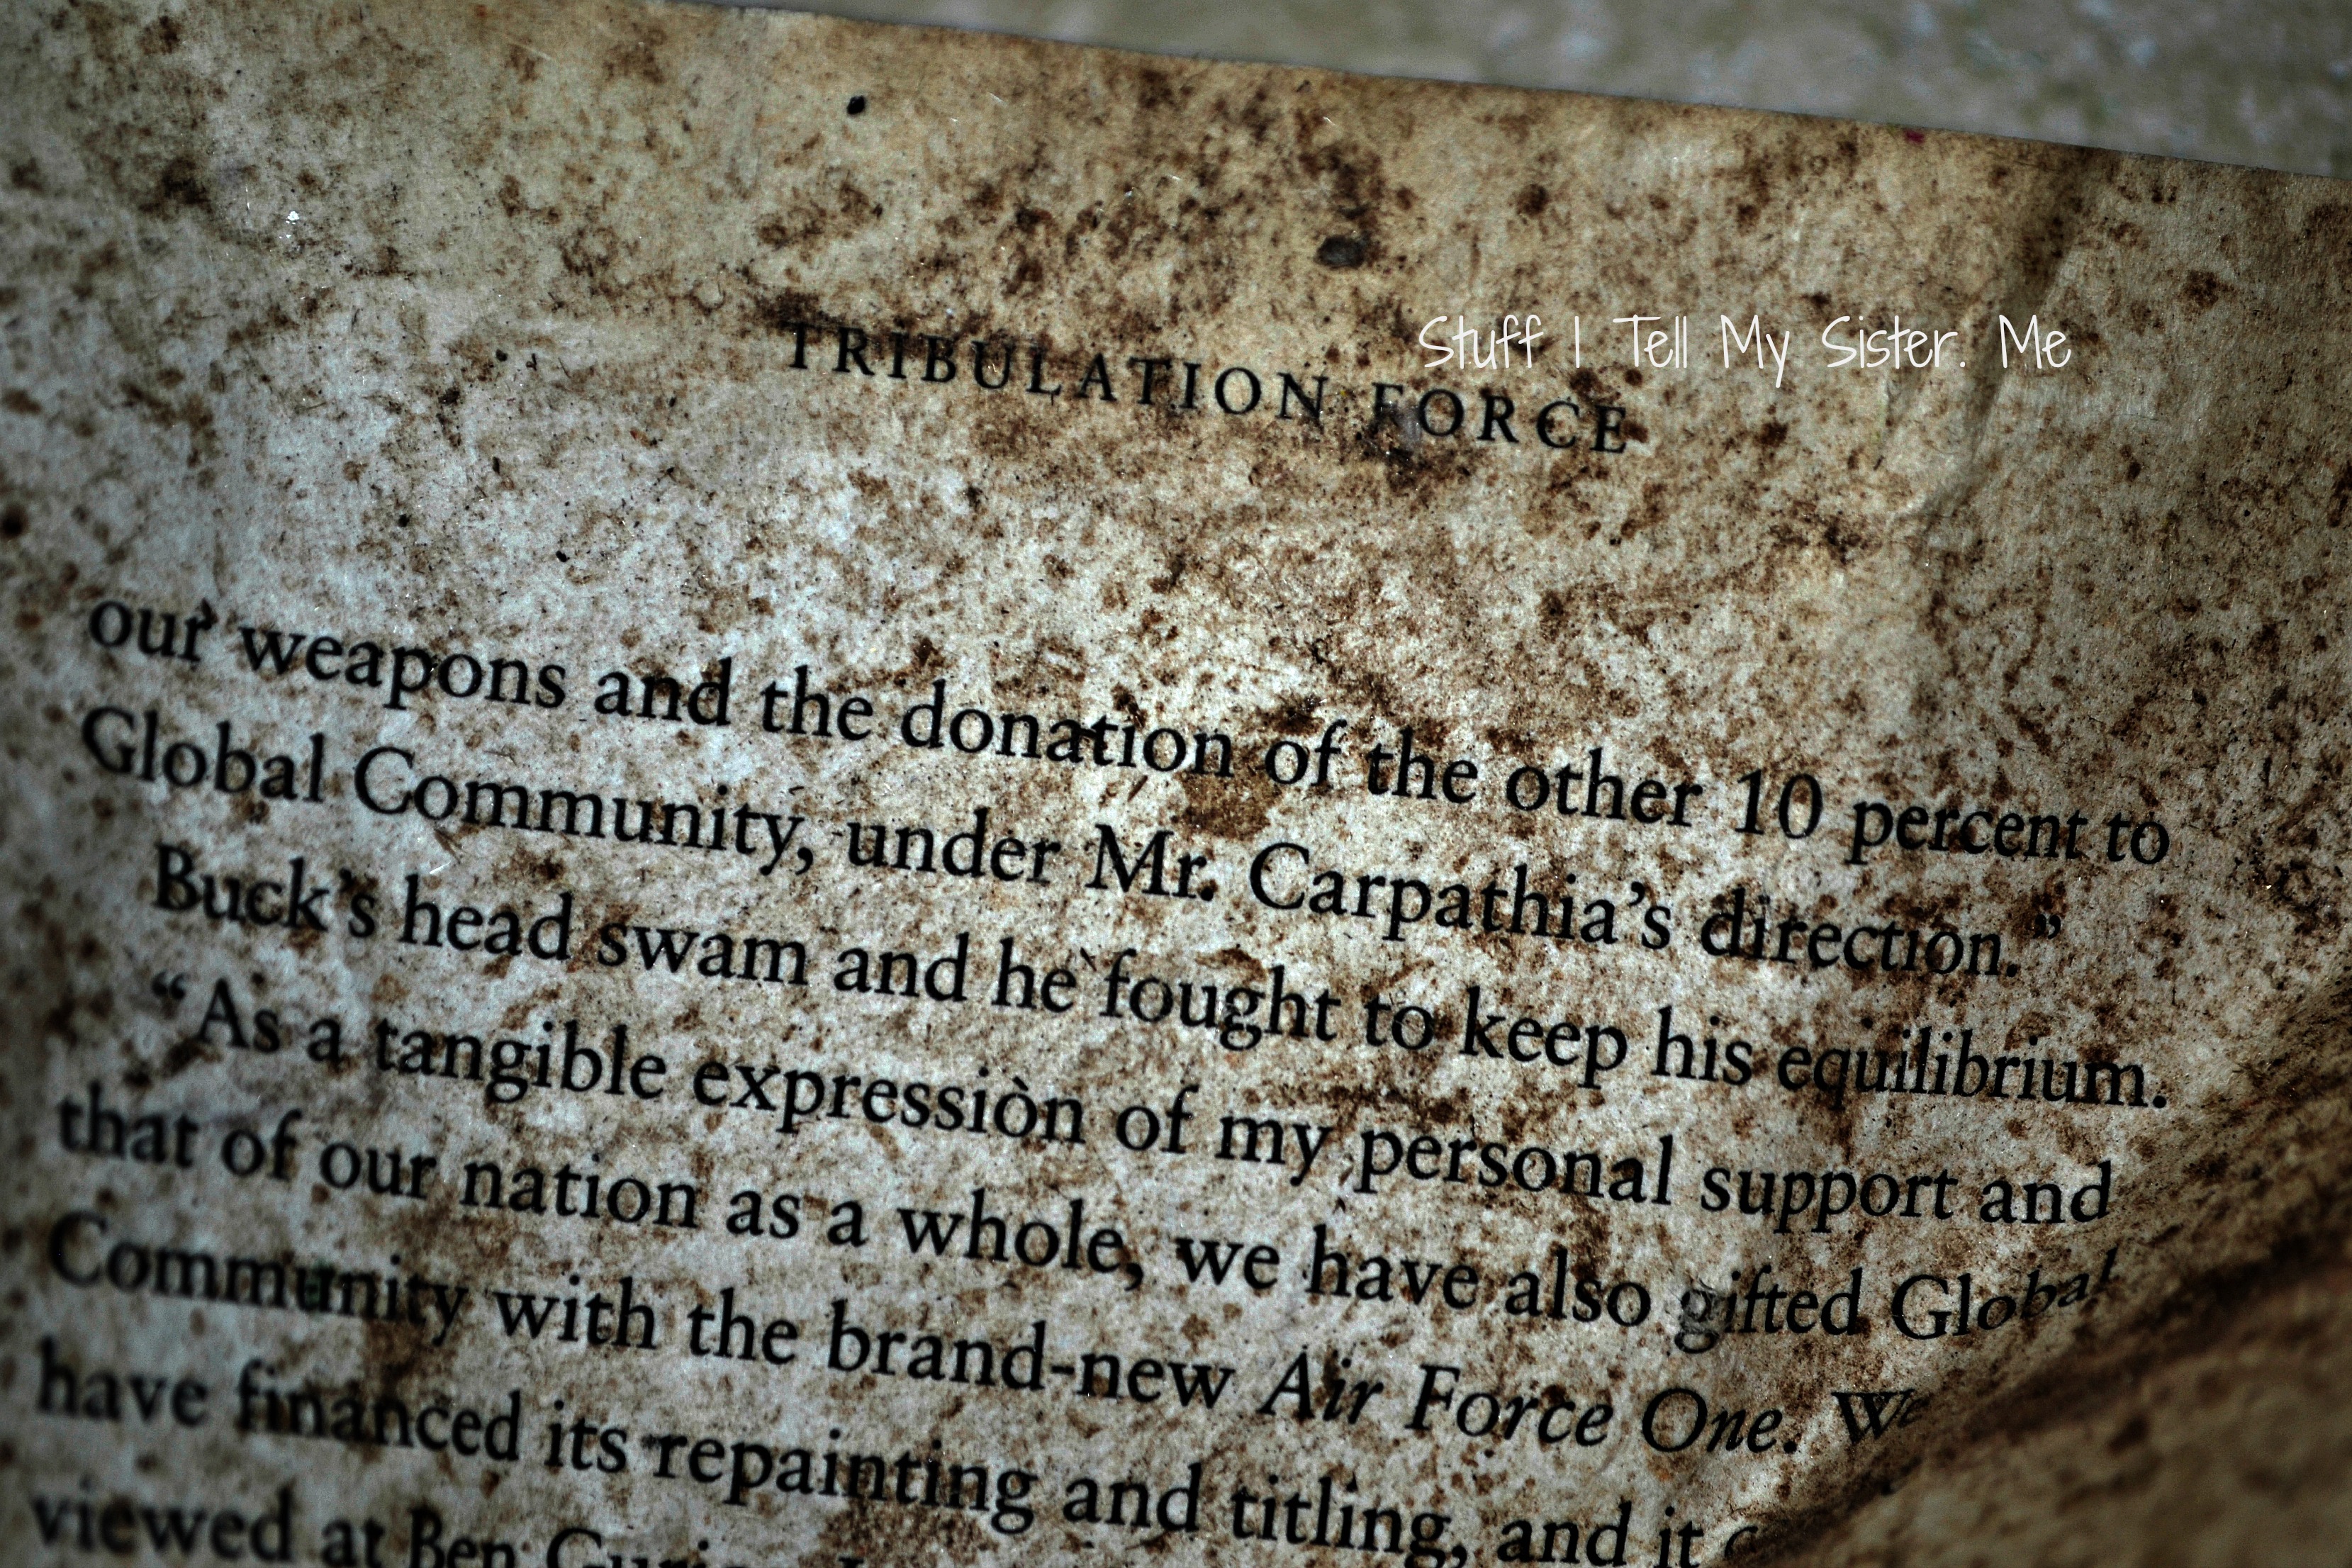 TRIBULATION FORCE
Stuff I Tell My Sister. Me
our weapons and the donation of the other 10 percent to
Global Community, under Mr. Carpathia's direction.”
Buck's head swam and he fought to keep his equilibrium.
“As a tangible expression of my personal support and
that of our nation as a whole, we have also gifted Global
Community with the brand-new Air Force One. We
have financed its repainting and titling, and it
viewed at Ben